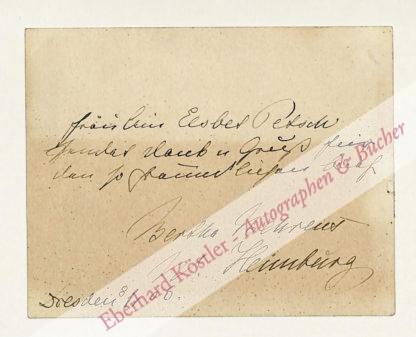 Fräulein Elsbet Petsch
sendet Dank u Gruß für
den so freundlichen
Bertha Behrens
Heimburg
Dresden
Eberhard Köstler - Autographen & Bücher